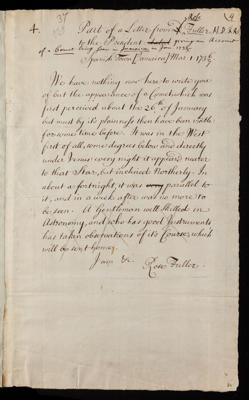 37 9
4. Part of a Letter from Rose Fuller, M.D. F.R.S.
to the President giving an Account
of a Comet being seen in Jamaica in Jan. 173⅞.
Spanish Town (Jamaica) Mar. 1. 173⅞.
We have nothing new here to write you
of but the appearance of a Comet which was
first perceived about the 26th of January
but must by its plainness then have been visible
for some time before. It was in the West
first of all, some degrees below and directly
under Venus every night it appear'd nearer
to that Star, but inclined Northerly. In
about a fortnight, it was parallel to
it, and in a week after was no more to
be seen. A Gentleman well skilled in
Astronomy, and who has good Instruments
has taken observations of its Course, which
will be sent home.
I am &c.
Rose Fuller.